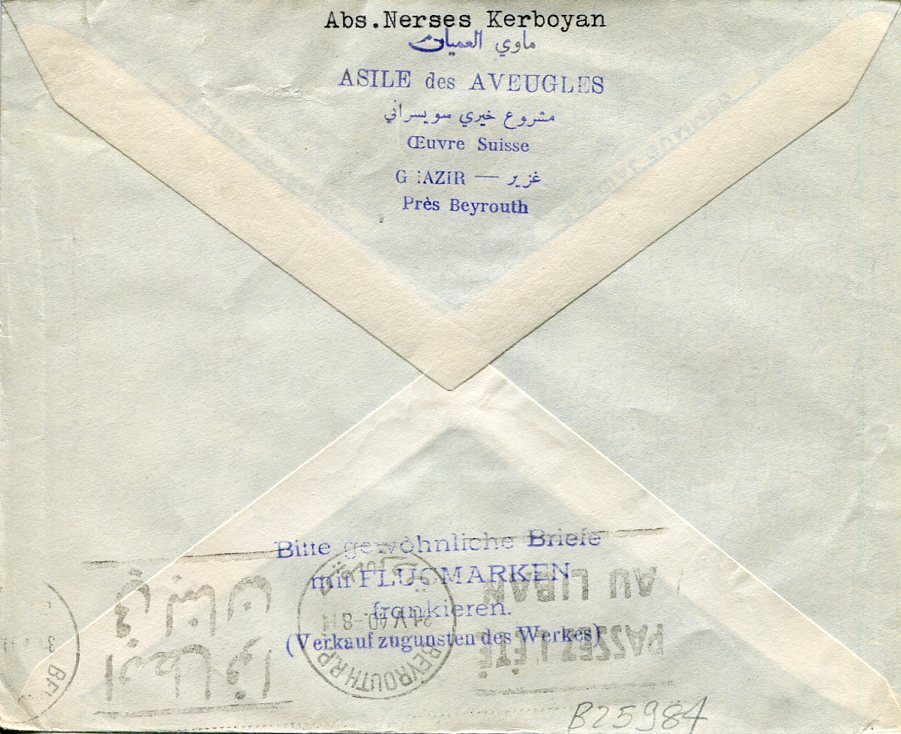 Abs.Nerses Kerboyan
ماوي العميان
ASILE des AVEUGLES
مشروع خيري سويسراني
Œuvre Suisse
GHAZIR — غزير
Près Beyrouth
Bitte gewöhnliche Briefe
mit FLUGMARKEN
frankieren.
(Verkauf zugunsten des Werkes)
PASSEZ L'ÉTÉ
AU LIBAN
BEYROUTH R.P.
في لبنان
B25984